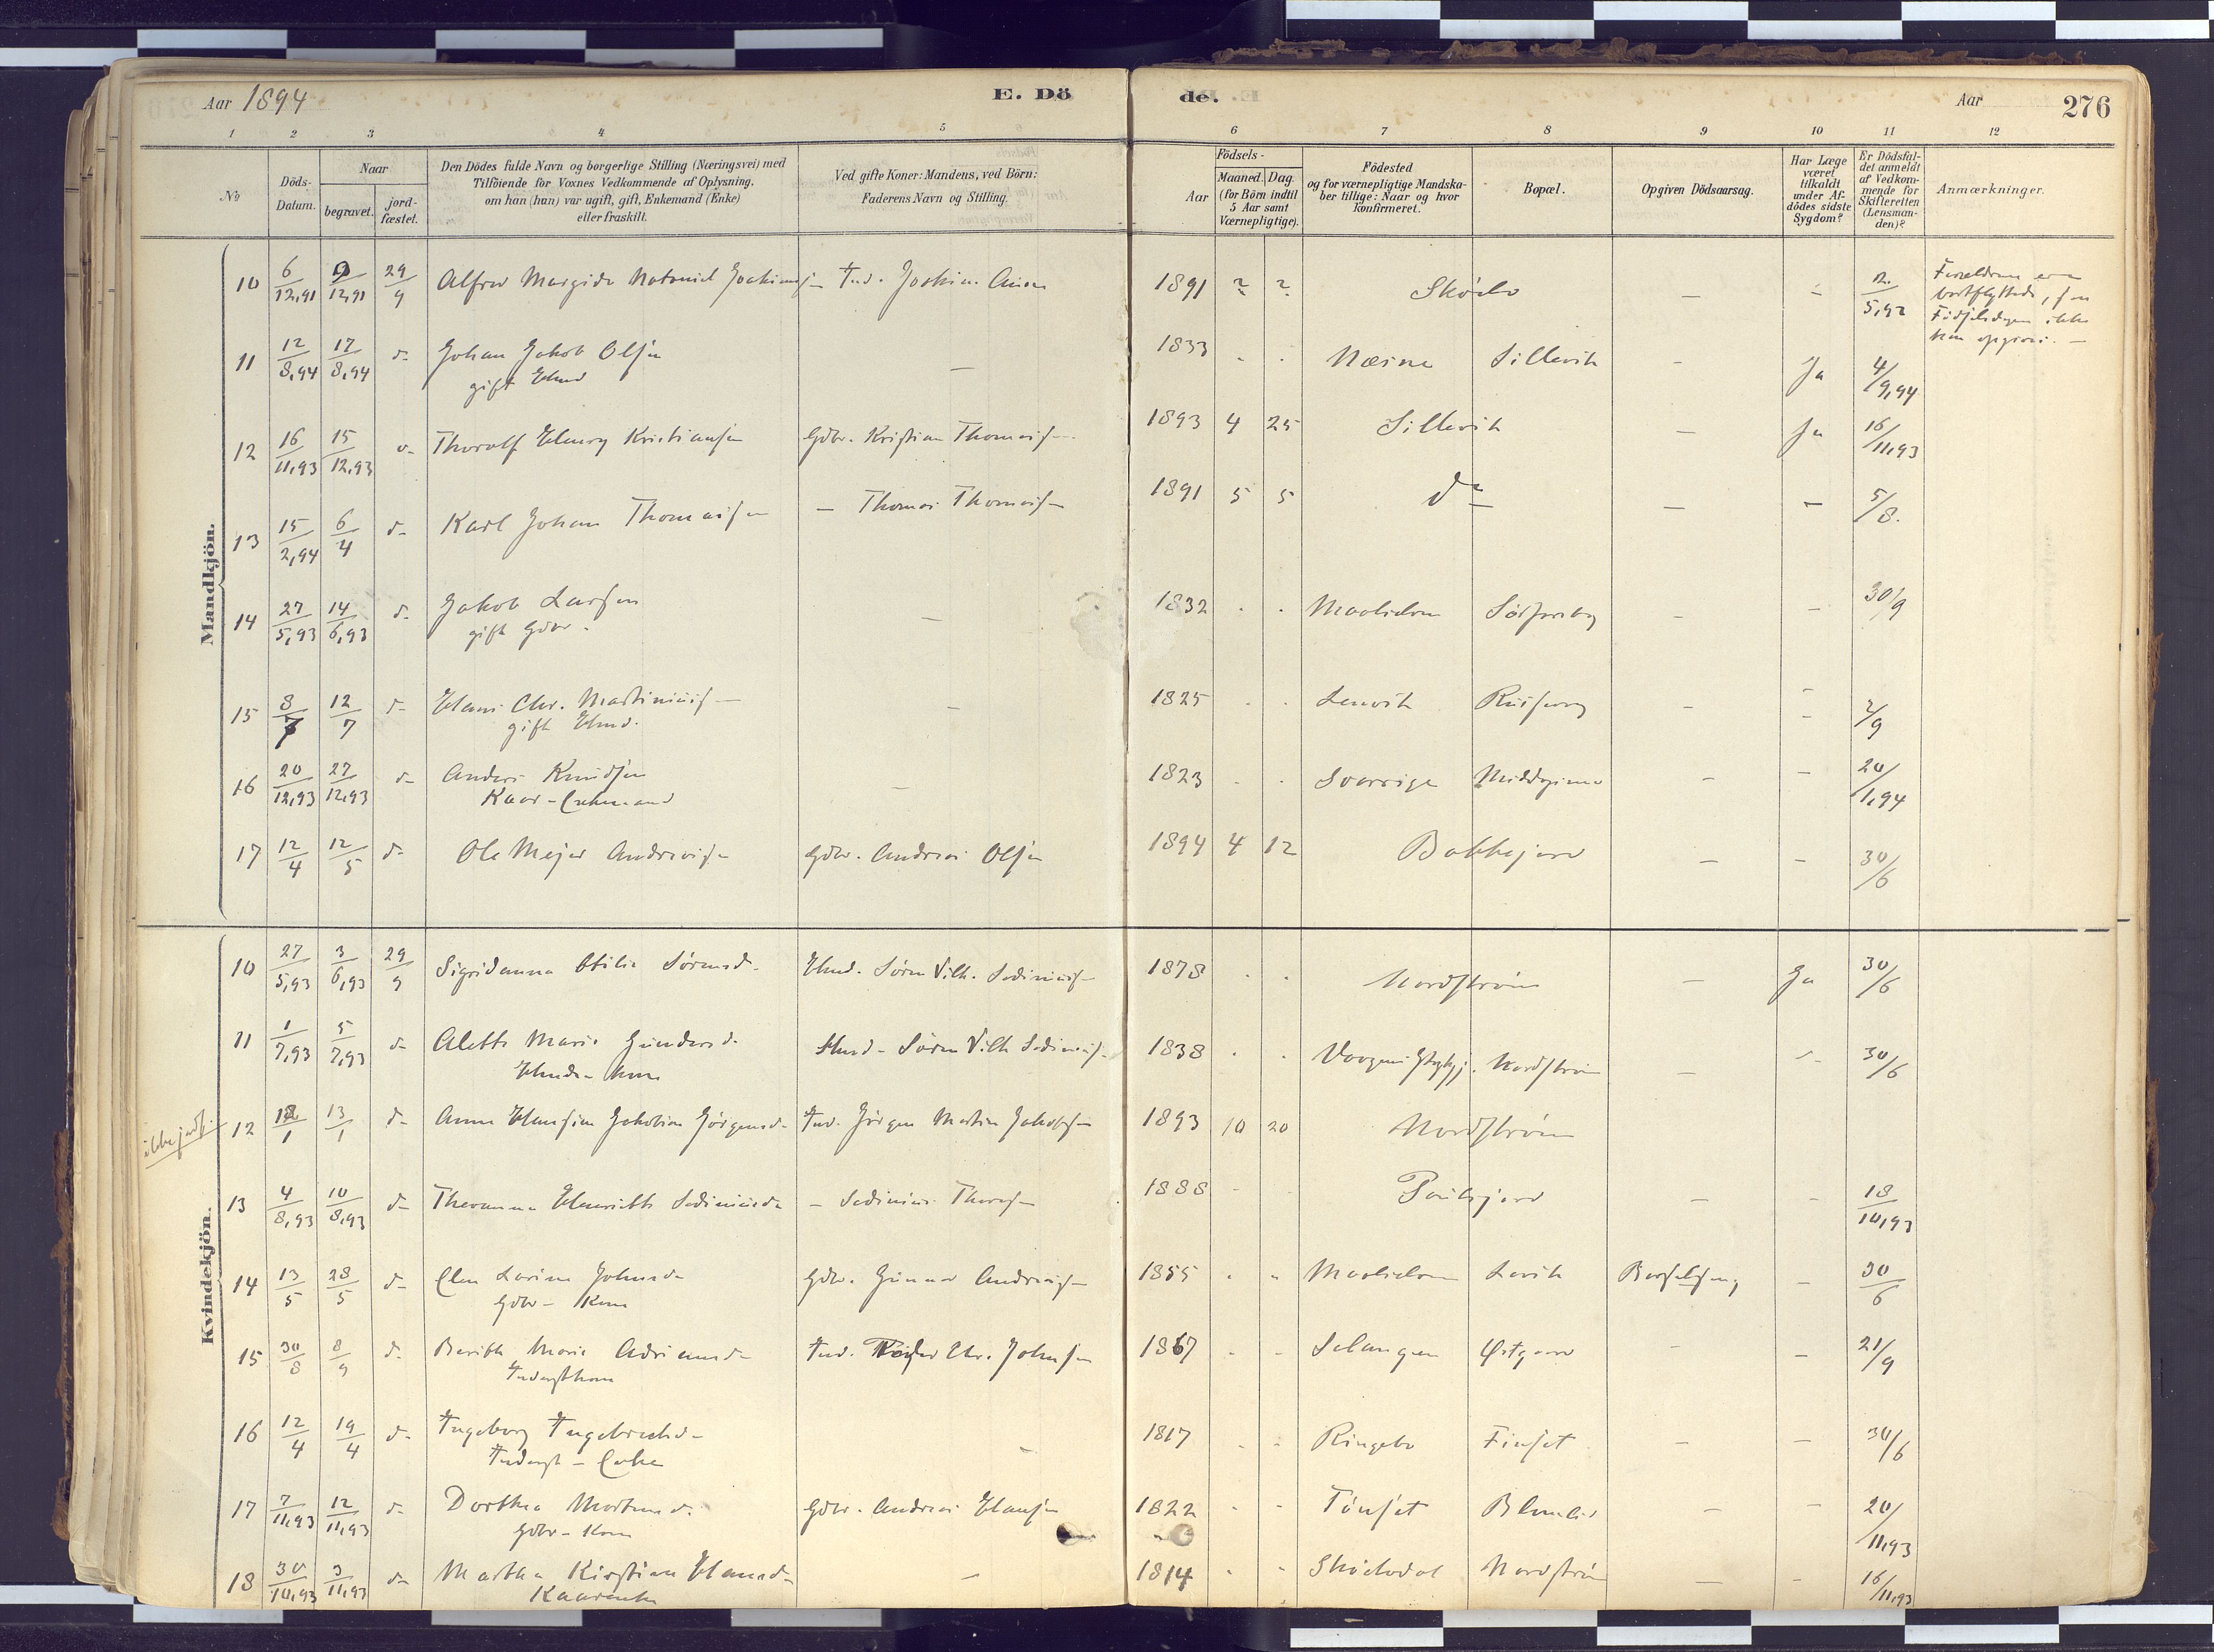 Aar 1894
E. Dö
de.
Aar
276
1 2 3 4 5 6 7 8 9 10 11 12
No
Döds-Datum.
Naar
begravet.
jord-fæstet.
Den Dödes fulde Navn og borgerlige Stilling (Næringsvei) med
Tilföiende for Voxnes Vedkommende af Oplysning.
om han (hun) var ugift, gift, Enkemand (Enke)
eller fraskilt.
Ved gifte Koner: Mandens, ved Börn:
Faderens Navn og Stilling.
Födsels-
Aar
Maaned. Dag.
(for Börn indtil
5 Aar samt
Værnepligtige).
Födested
og for værnepligtige Mandska-
ber tillige: Naar og hvor
konfirmeret.
Bopæl.
Opgiven Dödsaarsag.
Har Læge
været
tilkaldt
under Af-
dödes sidste
Sygdom?
Er Dödsfal-
det anmeldt
af Vedkom-
mende for
Skifteretten
(Lensman-
den)?
Anmærkninger.
Mandkjön.
10 6/12,91 9/12,91 29/9 Alfred Margido Nataniel Joakimsen Ind. Joakim 1891 ? ? 2/5,92
11 12/8,94 17/8,94 d- Johan Jakob Olsen - 1833 . . Sillevik - Ja 4/9,94
gift Hmd
12 16/11,93 15/12,93 d- Thoralf Henry Kristiansen Gdbr. Kristian Thomass- 1893 4 25 Sillevik - Ja 16/11,93
13 15/2,94 6/4 d- Karl Johan Thomassen - Thomas Thomass- 1891 5 5 do - - 5/8.
14 27/5,93 14/6,93 d- Jakob Larsen - 1832 . . Maalselven - - 30/9
gift Gdbr.
15 8/7 12/7 d- Hans Chr. Martiniuss- - 1825 . . Lenvik - - 2/9
gift Hmd.
16 20/12,93 27/12,93 d- Anders Knudsen - 1823 . . Sverrige - - 20/1,94
Kaar-Enkemand
17 12/4 12/5 d- Ole Mejer Andreass- Gdbr. Andreas Olsen 1894 4 12 Bakkejord - - 30/6
Kvindekjön.
10 27/5,93 3/6,93 29/9 Sigridanna Otilie Sörensd. Hmd. Sören Vilh. Sediniuss- 1878 . . Nordström - Ja 30/6
11 1/7,93 5/7,93 d- Aletta Marie Gundersd. Hmd- Sören Vilh Sediniuss- 1838 . . Nordström - 30/6
Hmds- kone
12 12/1 13/1 d- Anna Hansine Jakobine Jörgensd- Ind. Jörgen Martin Jakobs- 1893 10 20 Nordström
13 4/8,93 10/8,93 d- Theranna Henriette Sediniusd- - Sedinius Thores- 1888 - - - 18/10,93
14 13/5 28/5 d- Elen Lorine Johnsd- Gdbr. Gunnar Andreass- 1855 . . Maalselven Levik Barselseng - 30/6
Gdbr- Kone
15 30/8 8/9 d- Berith Marie Adriansd- Ind. Peder Chr. Johnsen 1867 - - Salangen Östgaard - - 21/9
Inderstkone
16 12/4 19/4 d- Ingeborg Ingebrechtsd- - 1817 - - Ringebo Finset - - 30/6
Inderst- Enke
17 7/11,93 12/11,93 d- Dorthea Mortensd. Gdbr. Andreas Hansen 1822 - - Tönset Blomli - - 20/11,93
Gdbr- Kone
18 30/10,93 3/11,93 d- Martha Kirstine Hansd- - 1814 - - Nordström - - 16/11,93
Kaarenke